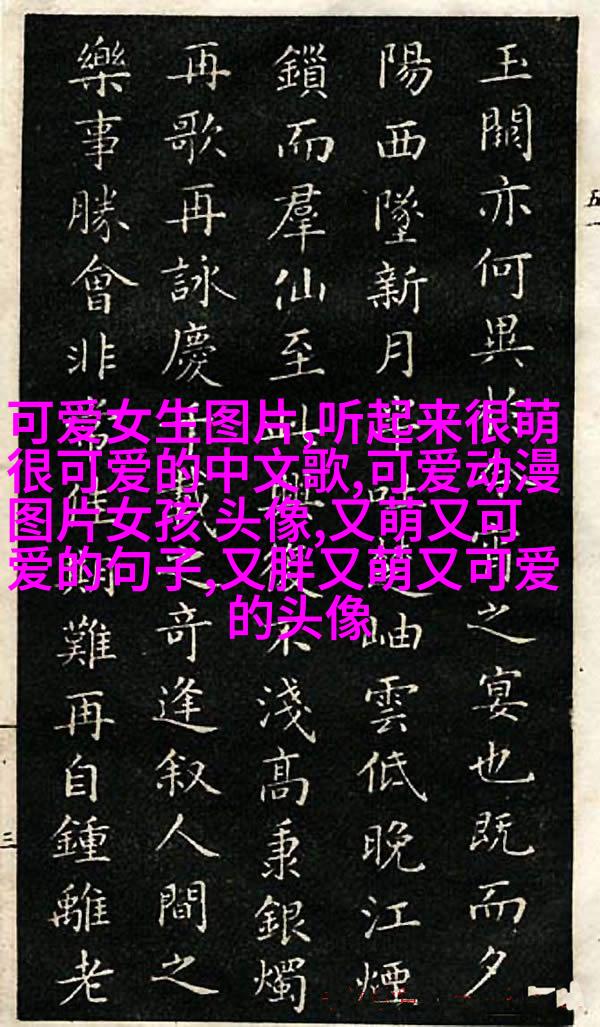 玉闕亦何異於今宵之宴也既而夕
陽西墜新月岫雲低晚江煙
鎖而羣仙至興復不淺高秉銀燭
再歌再詠慶千載之奇逢叙人間之
樂事勝會非常佳期難再自鍾離老
可爱女生图片,听起来很萌
很可爱的中文歌,可爱动漫
图片女孩 头像,又萌又可
爱的句子,又胖又萌又可爱
的头像